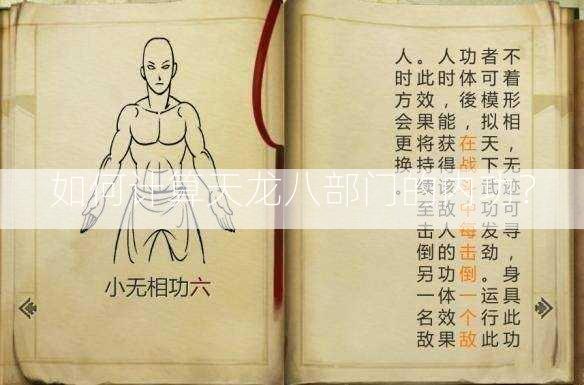 不着形相,无迹可寻,身具此功
者可模拟天下武功发劲。运行此
功体後,在战斗中每击倒一个敌
人时,能获得该敌人的功体效果
。此效果将持续至击倒另一名敌
人时方会更换。
小无相功六
如何计算天龙八部门的?